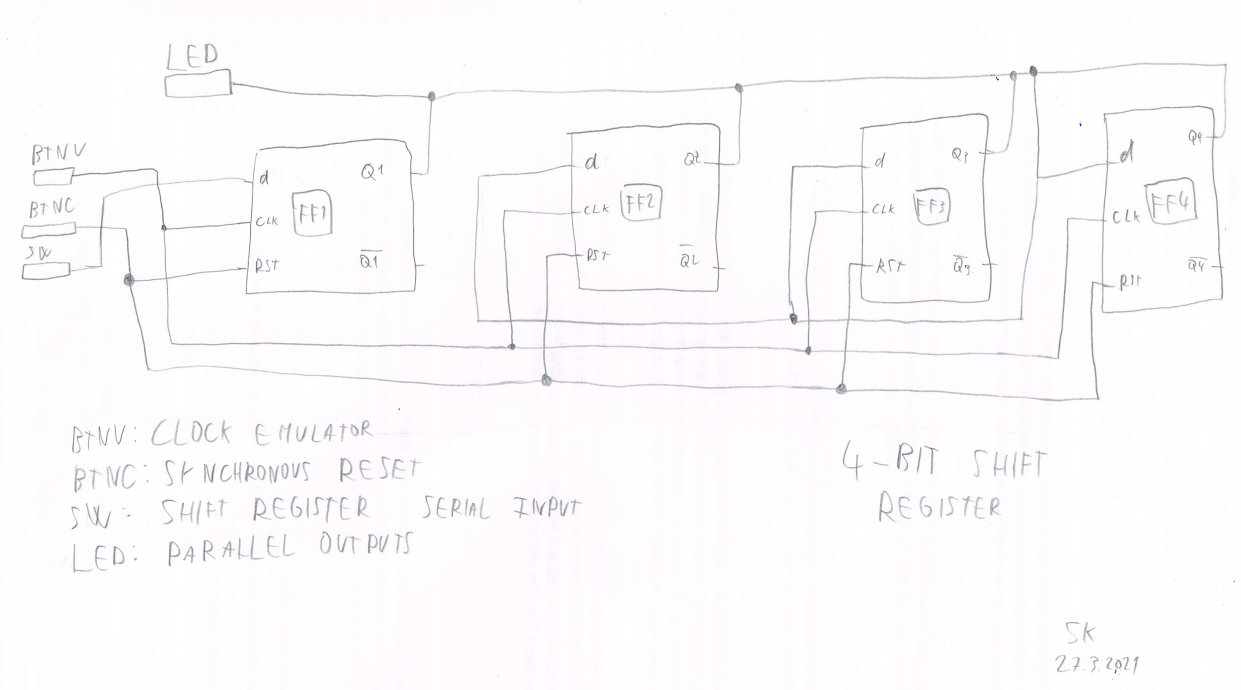 LED
BTNV
BTNC
SW
d
Q1
CLK
FF1
RST
Q̅1̅
d
Q2
CLK
FF2
RST
Q̅2̅
d
Q3
CLK
FF3
RST
Q̅3̅
d
Q4
CLK
FF4
RST
Q̅4̅
BTNV: CLOCK EMULATOR
BTNC: SYNCHRONOUS RESET
SW: SHIFT REGISTER SERIAL INPUT
LED: PARALLEL OUTPUTS
4-BIT SHIFT
REGISTER
SK
27.3.2021